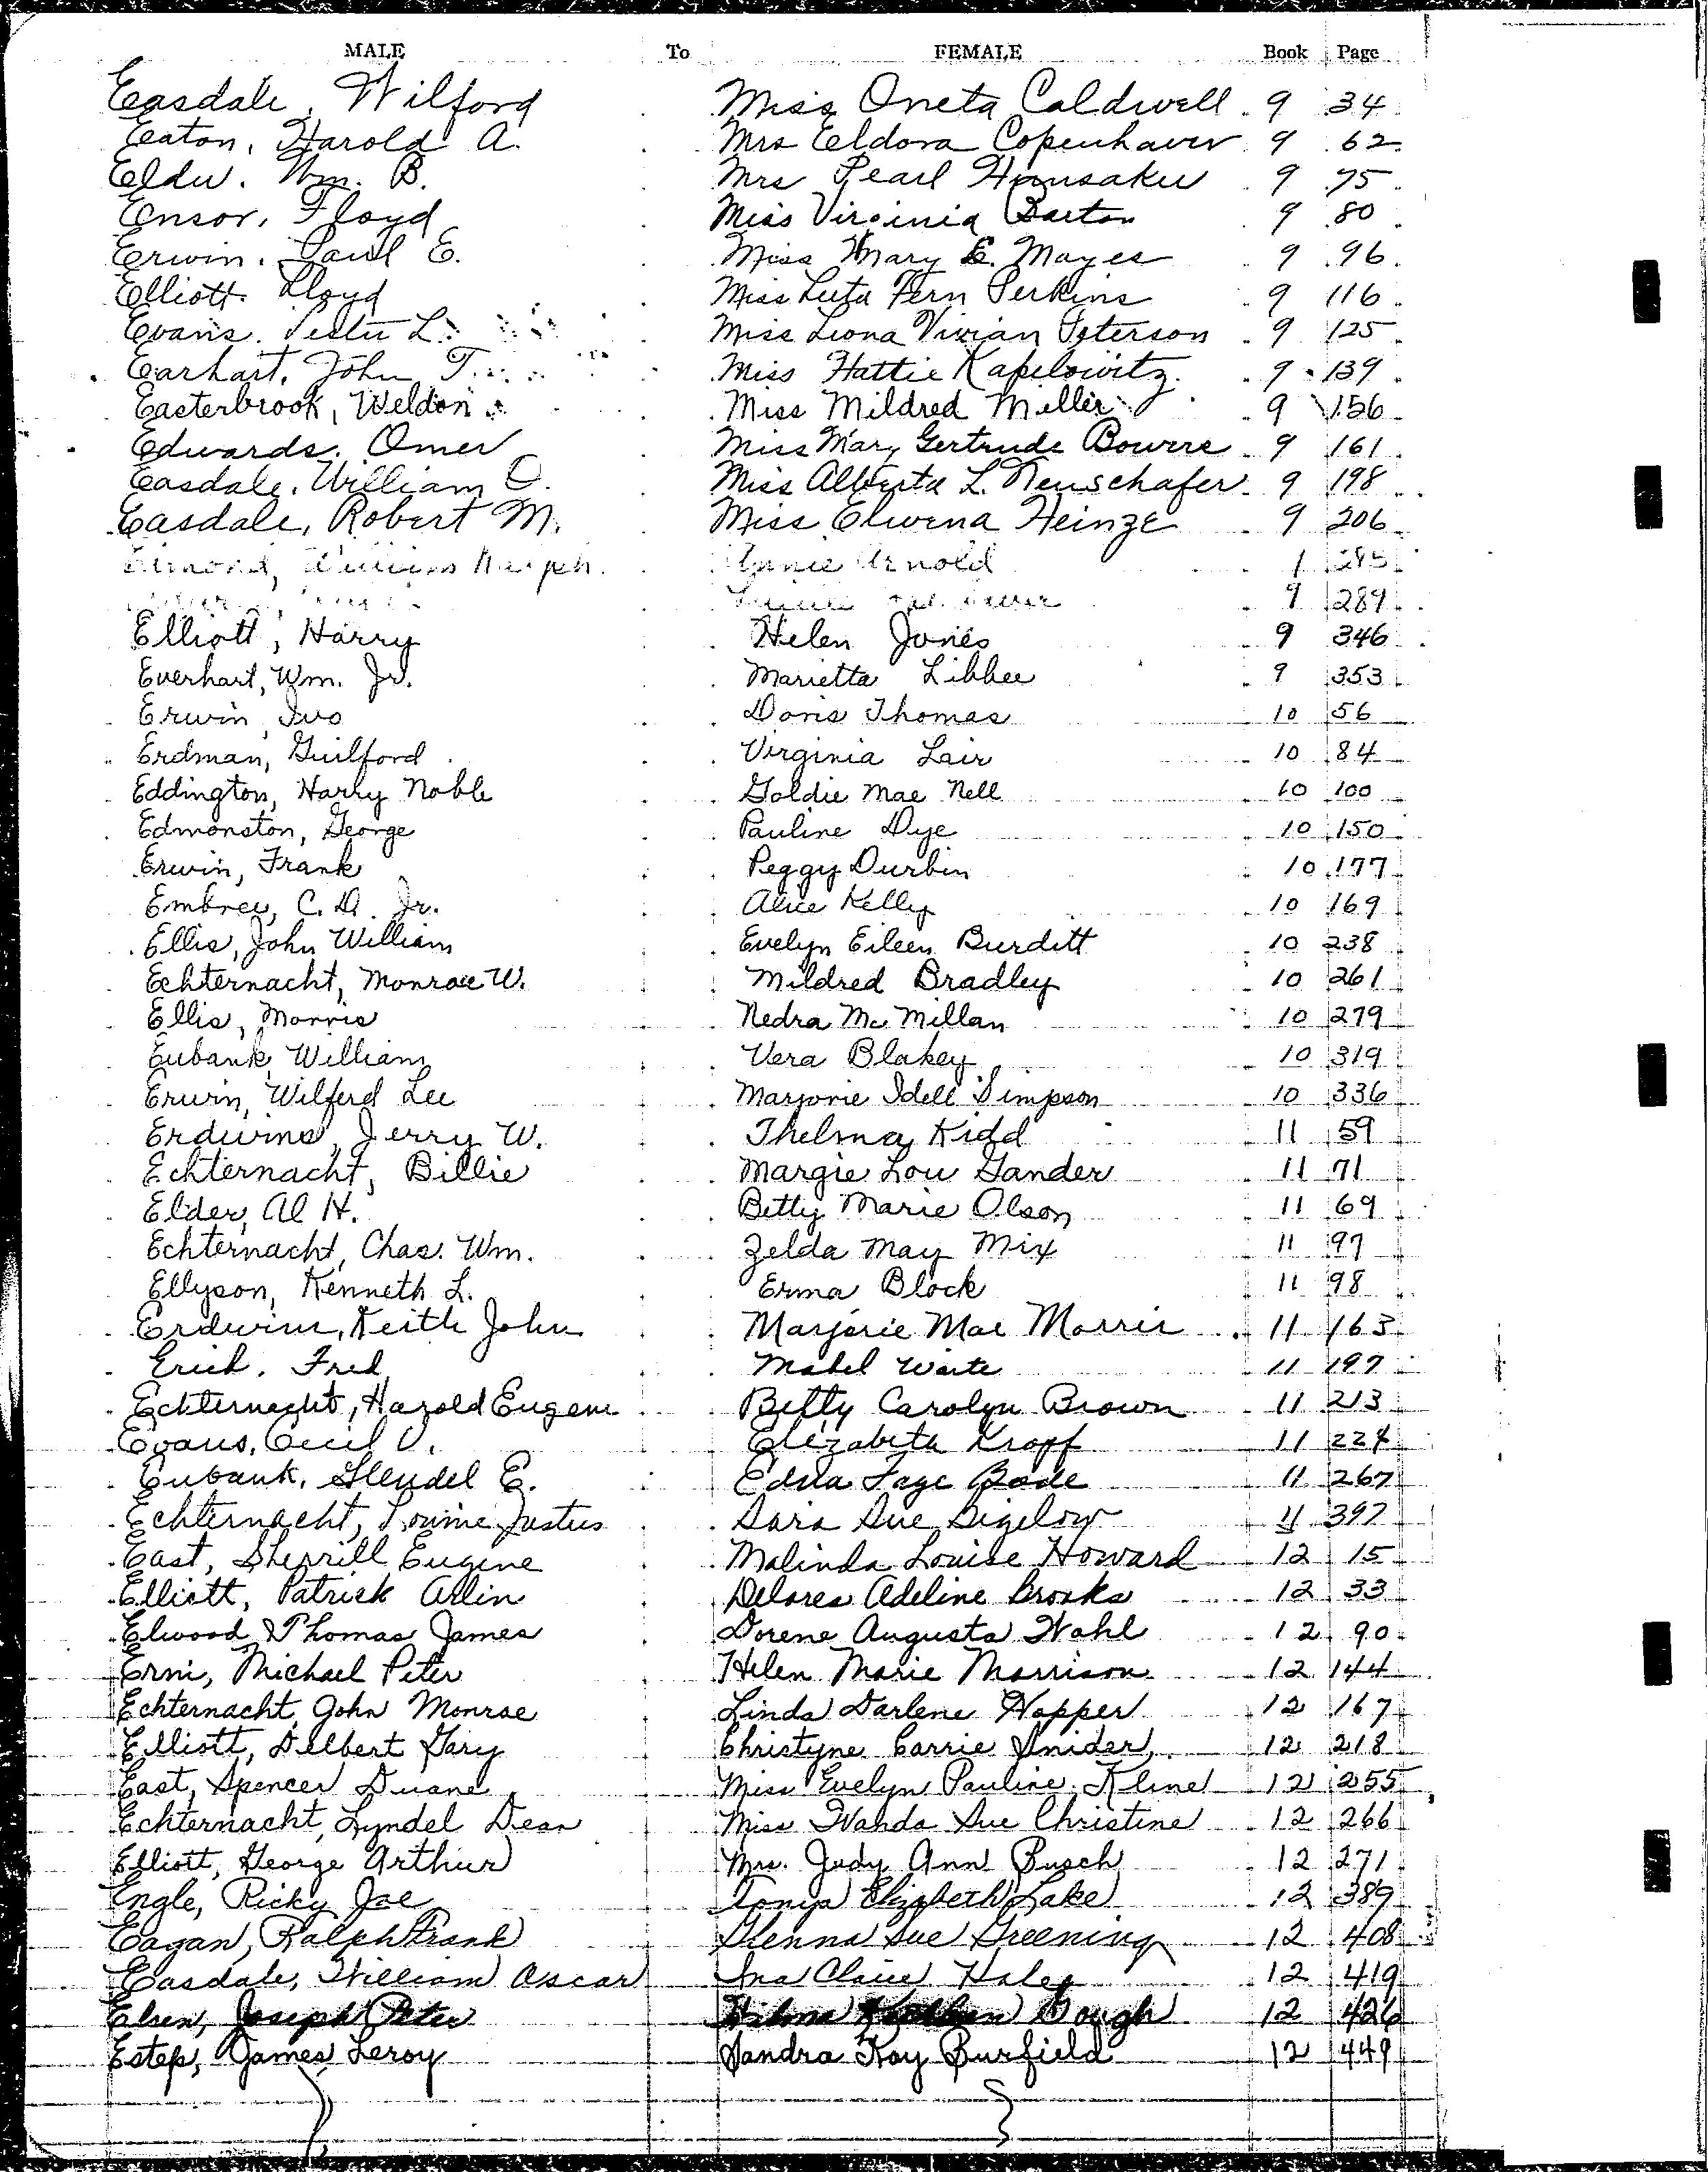 MALE To FEMALE Book Page
Easdale, Wilford Miss Oneta Caldwell 9 34
Eaton, Harold A. Mrs Eldora Copenhaver 9 62
Elder. Wm. B. Mrs Pearl Hunsaker 9 75
Ensor, Floyd Miss Virginia Barton 9 80
Erwin. Paul E. Miss Mary E. Mayes 9 96
Elliott. Lloyd Miss Leeta Fern Perkins 9 116
Evans. Lester L. Miss Leona Vivian Peterson 9 125
Earhart, John T. Miss Hattie Kapelowitz 9 139
Easterbrook, Weldon Miss Mildred Miller 9 156
Edwards. Omer Miss Mary Gertrude Bowers 9 161
Easdale, William O. Miss Alberta L. Neuschafer 9 198
Easdale, Robert M. Miss Elwena Heinze 9 206
Edmond, William Ralph Annie Arnold 285
9 289
Elliott, Harry Helen Jones 9 346
Everhart, Wm. Jr. Marietta Libbee 9 353
Erwin, Ivo Doris Thomas 10 56
Erdman, Guilford Virginia Lair 10 84
Eddington, Harry Noble Goldie Mae Nell 10 100
Edmonston, George Pauline Dye 10 150
Erwin, Frank Peggy Durbin 10 177
Embree, C. D. Jr. Alice Kelly 10 169
Ellis, John William Evelyn Eileen Burditt 10 238
Echternacht, Monroe W. Mildred Bradley 10 261
Ellis, Morris Nedra McMillan 10 279
Eubank, William Vera Blakey 10 319
Erwin, Wilferd Lee Marjorie Idell Simpson 10 336
Erdwins, Jerry W. Thelma Kidd 11 59
Echternacht, Billie Margie Lou Gander 11 71
Elder, Al H. Betty Marie Olson 11 69
Echternacht, Chas. Wm. Zelda May Mix 11 97
Ellyson, Kenneth L. Erma Block 11 98
Erdwins, Keith John Marjorie Mae Morris 11 163
Erich. Fred Mabel Waite 11 197
Echternacht, Harold Eugene Betty Carolyn Brown 11 213
Evans, Cecil V. Elizabeth Kropf 11 224
Eubank, Glendel E. Edna Faye Bode 11 267
Echternacht, Justus Sara Sue Bigelow 11 397
East, Sherrill Eugene Malinda Louise Howard 12 15
Elliott, Patrick Arlin Delores Adeline Brooks 12 33
Elwood, Thomas James Dorene Augusta Wahl 12 90
Erni, Michael Peter Helen Marie Morrison 12 144
Echternacht, John Monroe Linda Darlene Hopper 12 167
Elliott, Delbert Gary Christyne Carrie Snider 12 218
East, Spencer Duane Miss Evelyn Pauline Kline 12 255
Echternacht, Lyndel Dean Miss Wanda Sue Christine 12 266
Elliott, George Arthur Mrs. Judy Ann Busch 12 271
Engle, Ricky Joe Tonya Elizabeth Lake 12 389
Eagan, Ralph Frank Glenna Sue Greening 12 408
Easdale, William Oscar Ina Claire Haley 12 419
Elsen, Joseph Peter Gough 12 426
Estep, James Leroy Sandra Kay Burfield 12 449